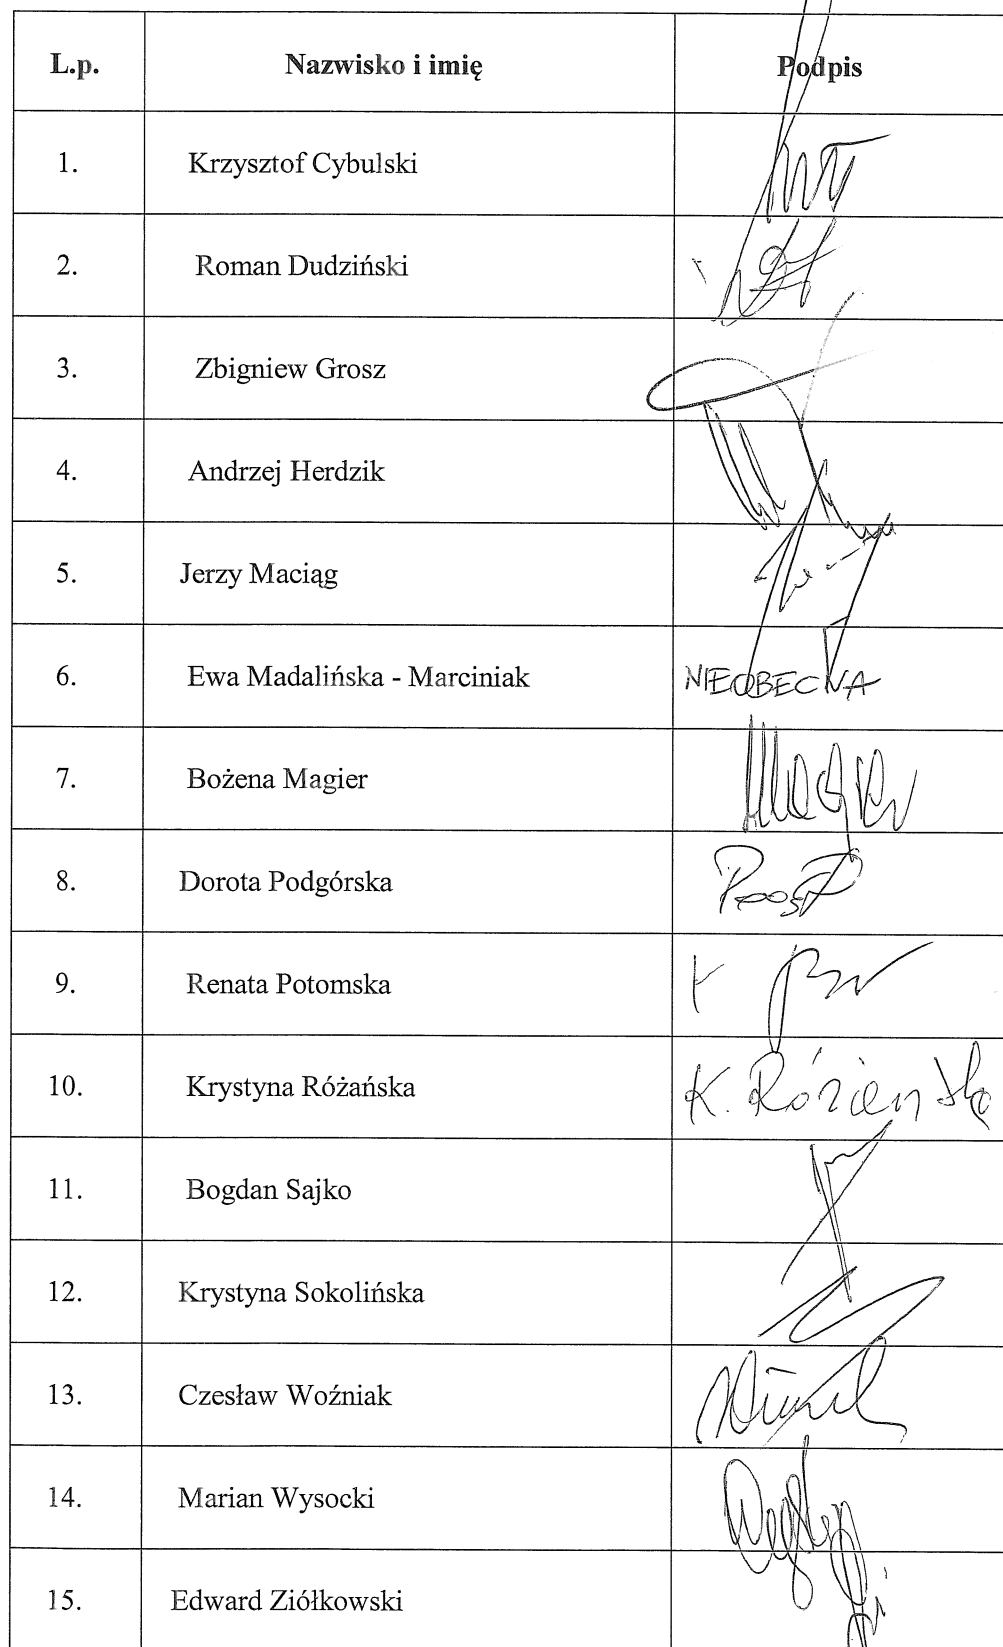 L.p. Nazwisko i imię Podpis
1. Krzysztof Cybulski
2. Roman Dudziński
3. Zbigniew Grosz
4. Andrzej Herdzik
5. Jerzy Maciąg
6. Ewa Madalińska - Marciniak NIEOBECNA
7. Bożena Magier
8. Dorota Podgórska
9. Renata Potomska
10. Krystyna Różańska K. Różańska
11. Bogdan Sajko
12. Krystyna Sokolińska
13. Czesław Woźniak
14. Marian Wysocki
15. Edward Ziółkowski